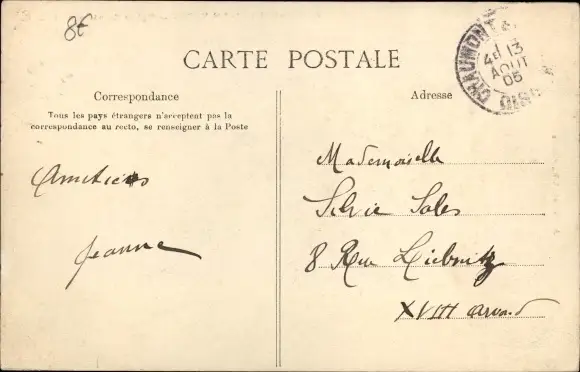 8€
CARTE POSTALE
Correspondance
Tous les pays étrangers n'acceptent pas la
correspondance au recto, se renseigner à la Poste
Adresse
CHAUMONT
4E 13
AOUT
05
OISE
Amitiés
Jeanne
Mademoiselle
Silvie Sales
8 Rue Leibnitz
XVIII